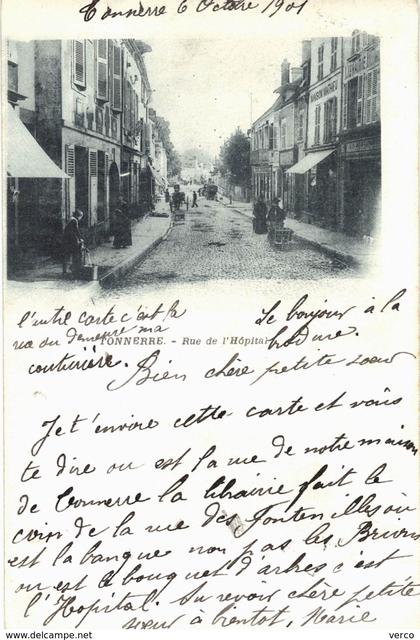 Tonnerre 6 Octobre 1901
MAISON MATHIEU
l'autre carte c'est la
rue ou demeure ma
couturière.
Le bonjour à la
bordure.
TONNERRE. - Rue de l'Hôpital
Bien chère petite sœur
Je t'envoie cette carte et vais
te dire ou est la rue de notre maison
de Tonnerre la librairie fait le
coin de la rue des Fontenilles où
est la banque non pas les
ou est le bouquet d'arbres c'est
l'Hopital. Au revoir chère petite
sœur à bientot, Marie
www.delcampe.net
veco